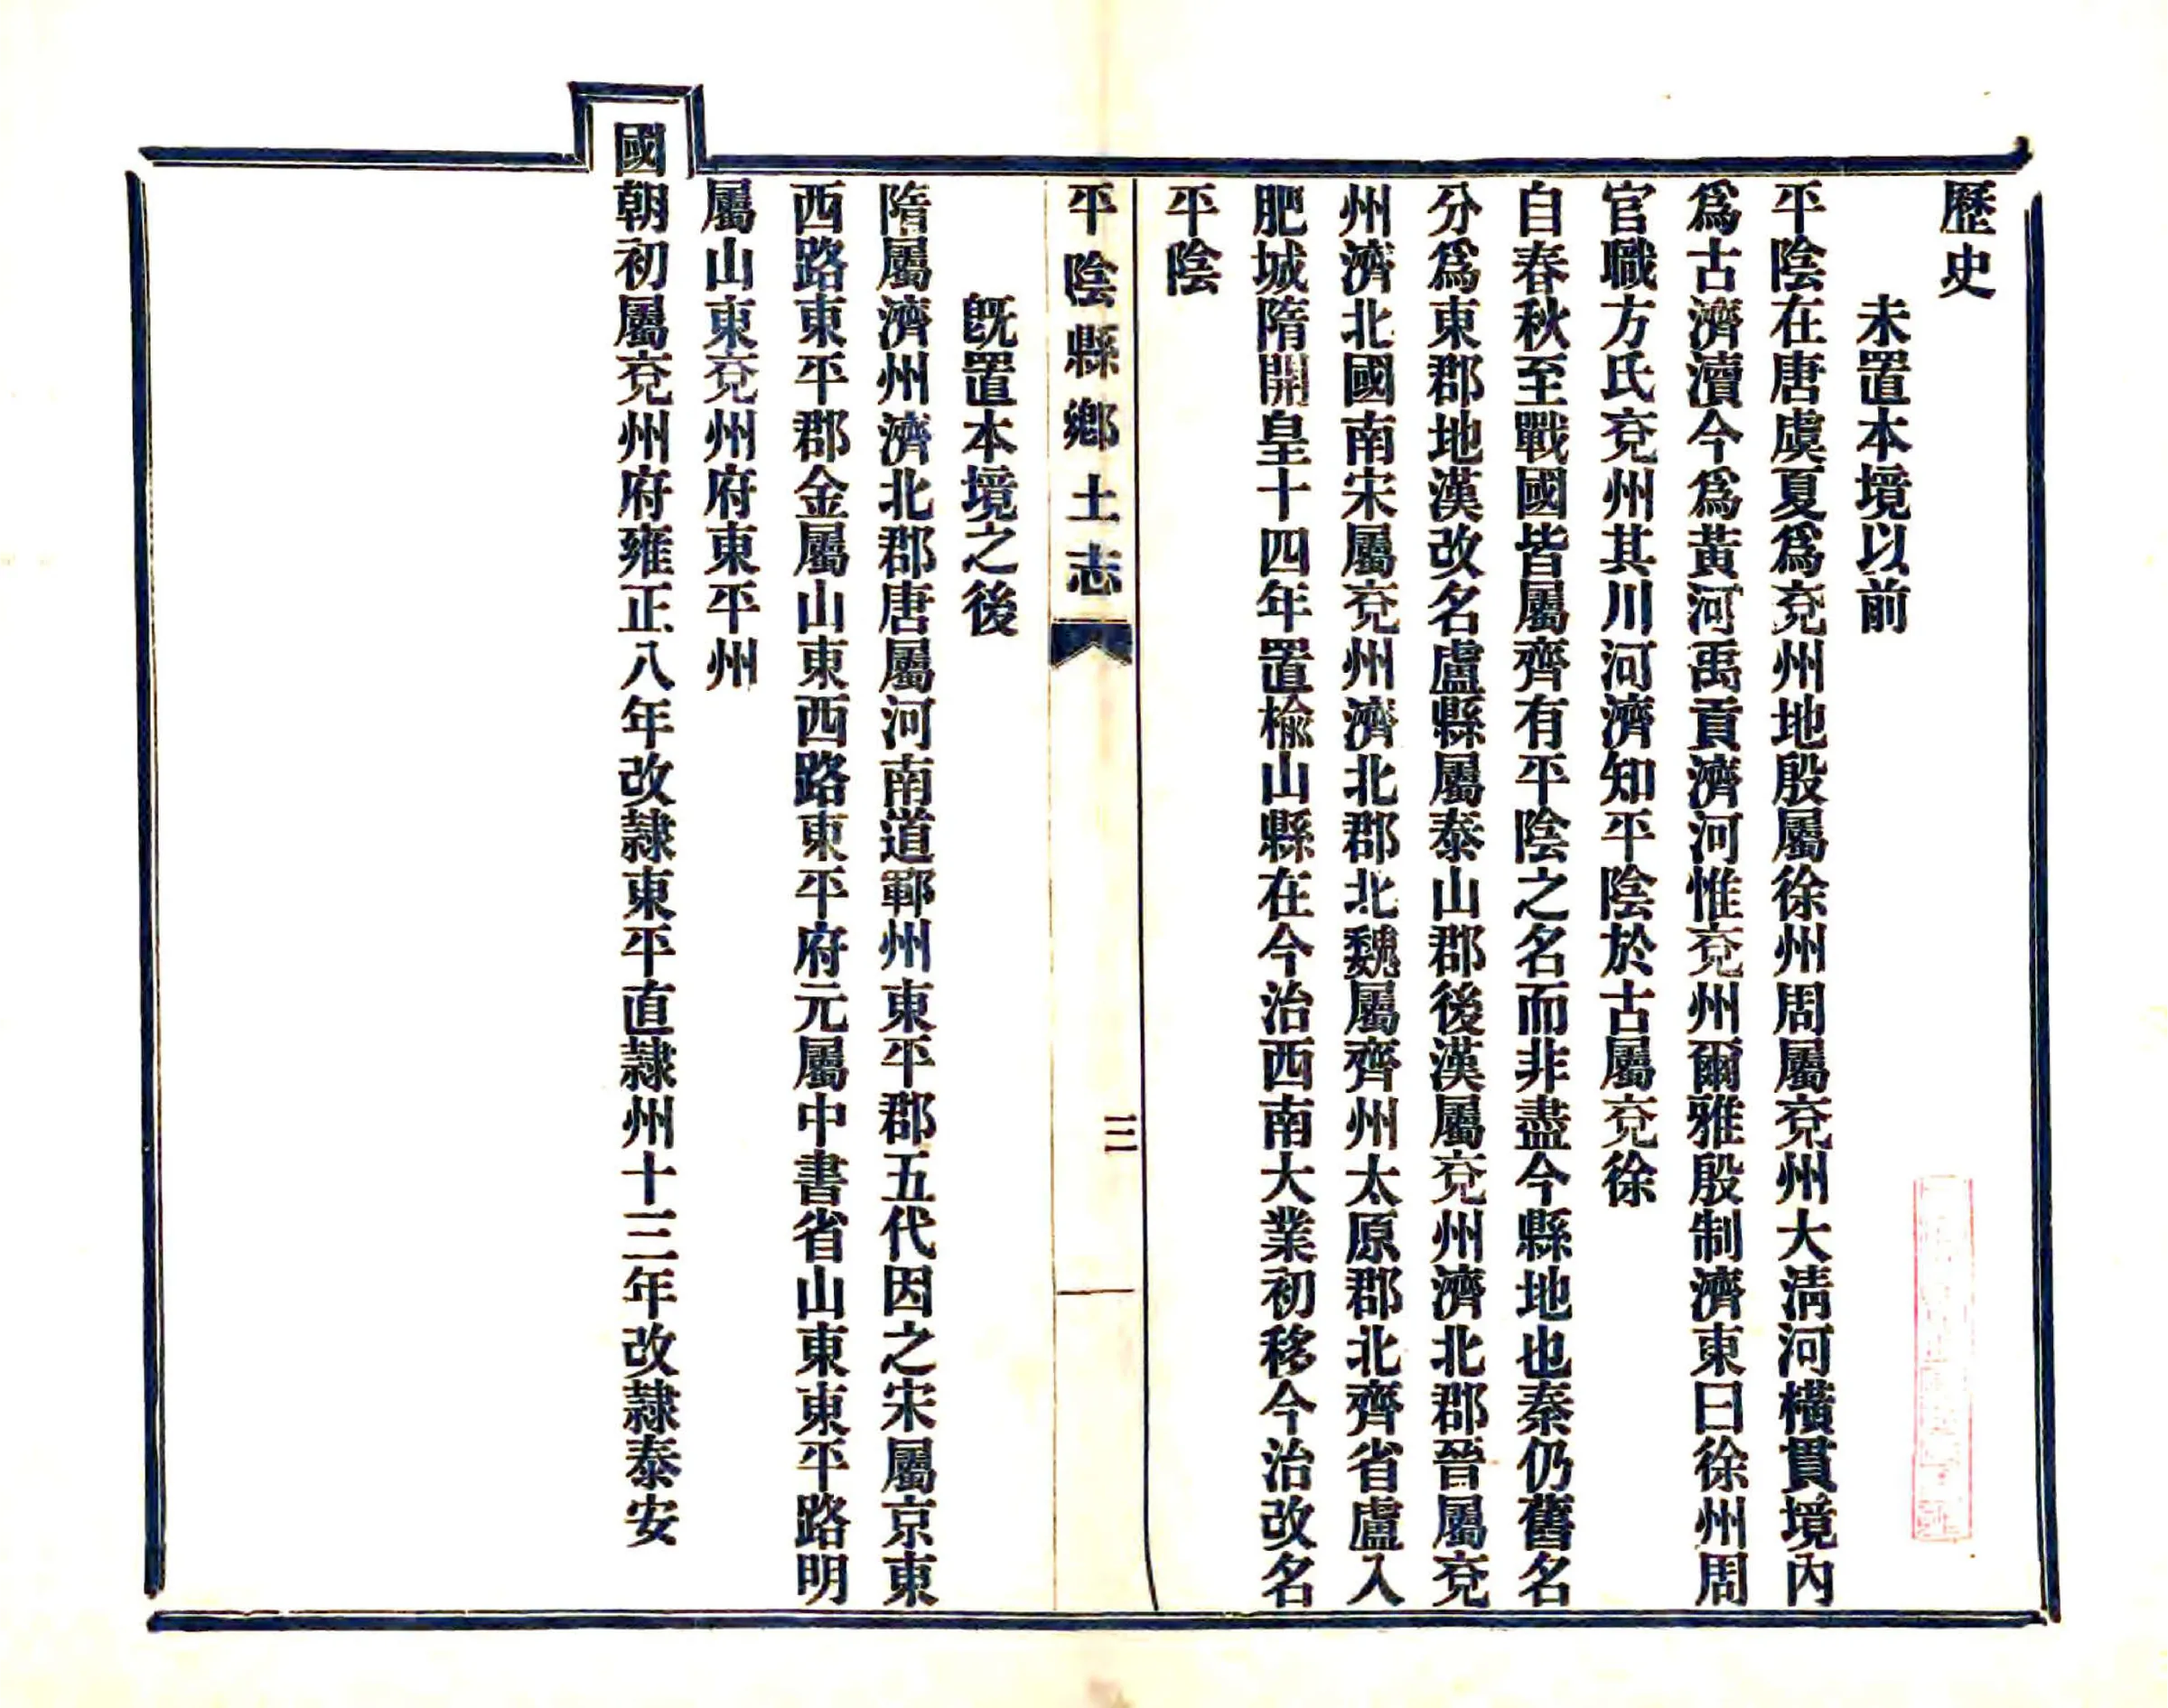 歷史
未置本境以前
平陰在唐虞夏爲兗州地殷屬徐州周屬兗州大淸河橫貫境內
爲古濟瀆今爲黃河禹貢濟河惟兗州爾雅殷制濟東曰徐州周
官職方氏兗州其川河濟知平陰於古屬兗徐
自春秋至戰國皆屬齊有平陰之名而非盡今縣地也秦仍舊名
分爲東郡地漢改名盧縣屬泰山郡後漢屬兗州濟北郡晉屬兗
州濟北國南宋屬兗州濟北郡北魏屬齊州太原郡北齊省盧入
肥城隋開皇十四年置楡山縣在今治西南大業初移今治改名
平陰
平陰縣鄕土志
三
旣置本境之後
隋屬濟州濟北郡唐屬河南道鄆州東平郡五代因之宋屬京東
西路東平郡金屬山東西路東平府元屬中書省山東東平路明
屬山東兗州府東平州
國朝初屬兗州府雍正八年改隸東平直隸州十三年改隸泰安